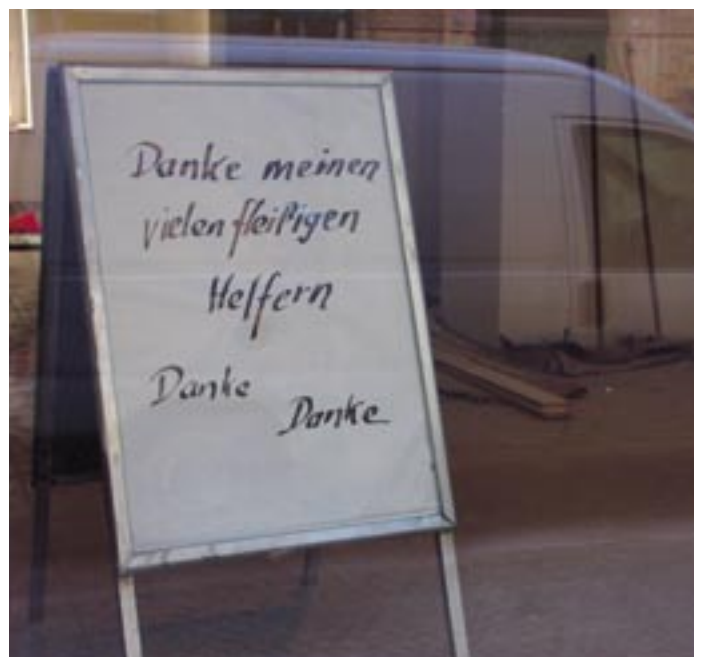 Danke meinen
vielen fleißigen
Helfern
Danke
Danke